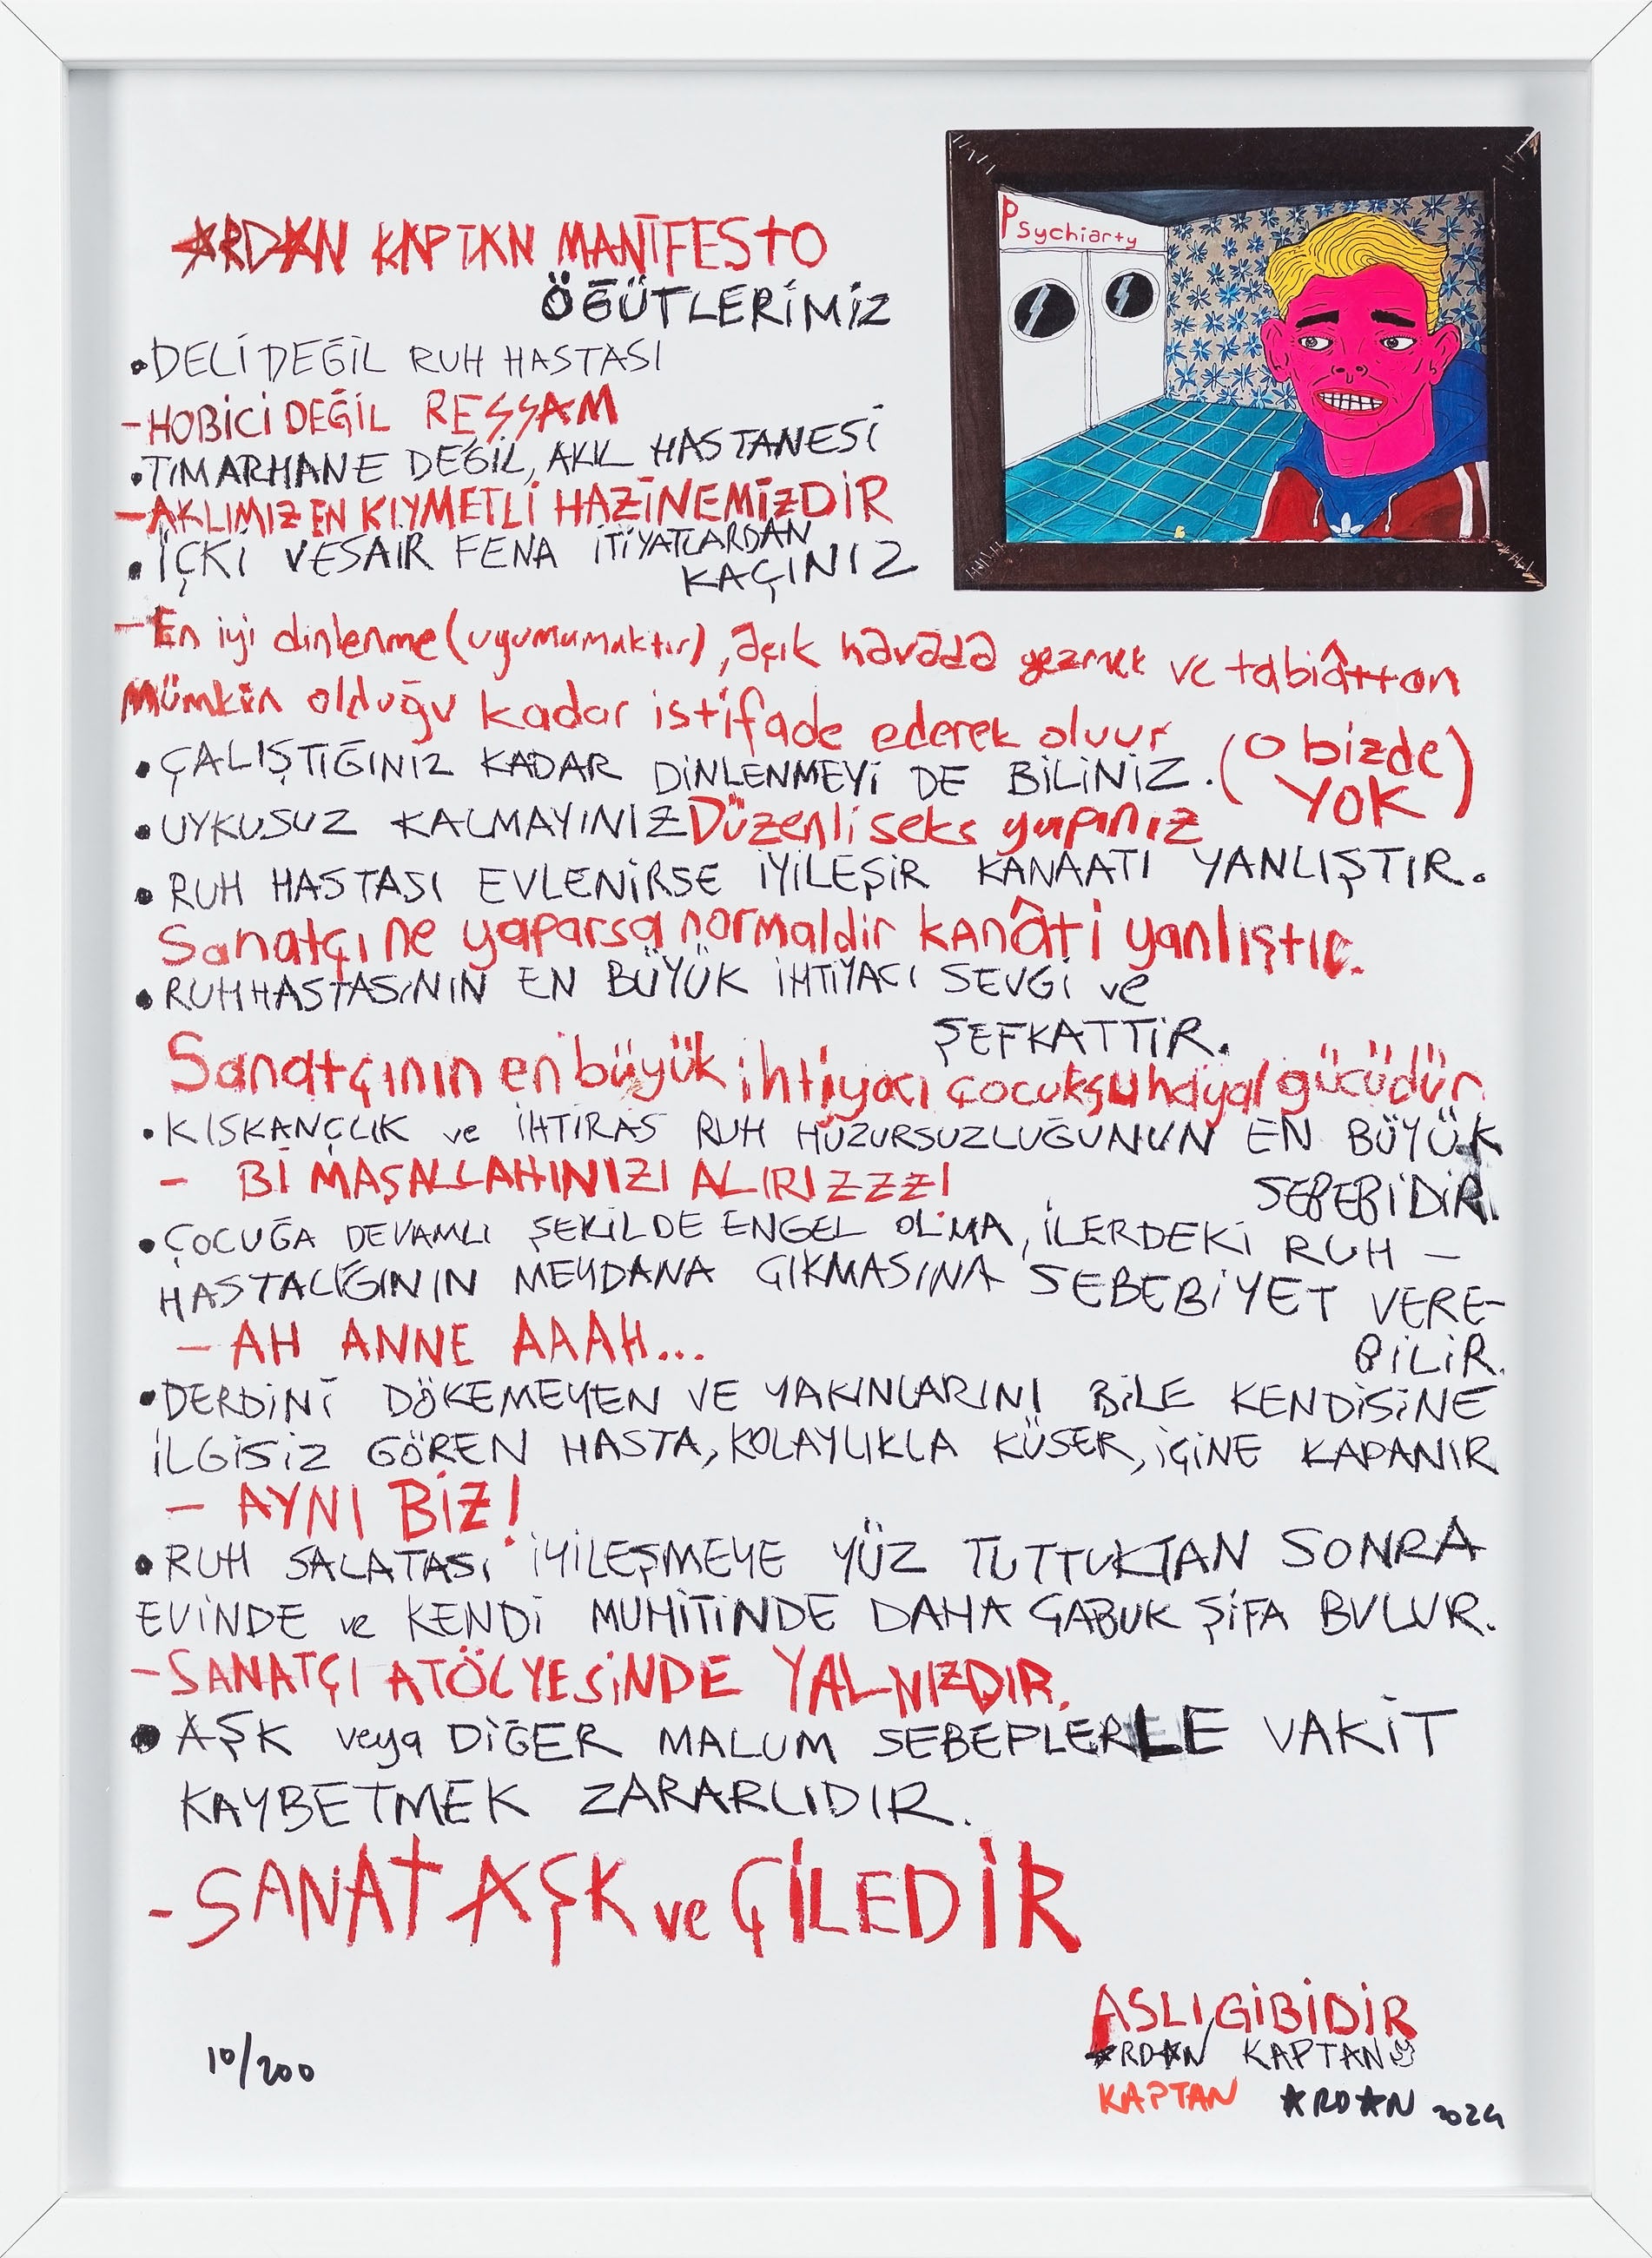 ARDAN KAPTAN MANİFESTO
ÖĞÜTLERİMİZ
Psychiarty
•DELİ DEĞİL RUH HASTASI
-HOBİCİ DEĞİL RESSAM
•TIMARHANE DEĞİL, AKIL HASTANESİ
-AKLIMIZ EN KIYMETLİ HAZİNEMİZDİR
•İÇKİ VESAİR FENA İTİYATLARDAN
KAÇINIZ
-En iyi dinlenme (uyumamaktır), açık havada gezmek ve tabiâttan
Mümkün olduğu kadar istifade ederek oluur
•ÇALIŞTIĞINIZ KADAR DİNLENMEYİ DE BİLİNİZ. (O bizde
YOK)
•UYKUSUZ KALMAYINIZ Düzenli seks yapınız
•RUH HASTASI EVLENİRSE İYİLEŞİR KANAATI YANLIŞTIR.
Sanatçı ne yaparsa normaldir kanâti yanlıştır.
•RUH HASTASININ EN BÜYÜK İHTİYACI SEVGİ ve
ŞEFKATTİR.
Sanatçının en büyük ihtiyacı çocuksu hayal gücüdür
•KISKANÇLIK ve İHTİRAS RUH HUZURSUZLUĞUNUN EN BÜYÜK
SEBEBİDİR.
- Bİ MAŞALLAHINIZI ALIRIZZZ!
•ÇOCUĞA DEVAMLI ŞEKİLDE ENGEL OLMA, İLERDEKİ RUH -
HASTALIĞININ MEYDANA ÇIKMASINA SEBEBİYET VERE-
BİLİR.
- AH ANNE AAAH...
•DERDİNİ DÖKEMEYEN VE YAKINLARINI BİLE KENDİSİNE
İLGİSİZ GÖREN HASTA, KOLAYLIKLA KÜSER, İÇİNE KAPANIR
- AYNI BİZ!
•RUH SALATASI İYİLEŞMEYE YÜZ TUTTUKTAN SONRA
EVİNDE ve KENDİ MUHİTİNDE DAHA ÇABUK ŞİFA BULUR.
-SANATÇI ATÖLYESİNDE YALNIZDIR.
•AŞK veya DİĞER MALUM SEBEPLERLE VAKİT
KAYBETMEK ZARARLIDIR.
-SANAT AŞK ve ÇİLEDİR
ASLI GİBİDİR
ARDAN KAPTAN
KAPTAN ARDAN 2024
10/200